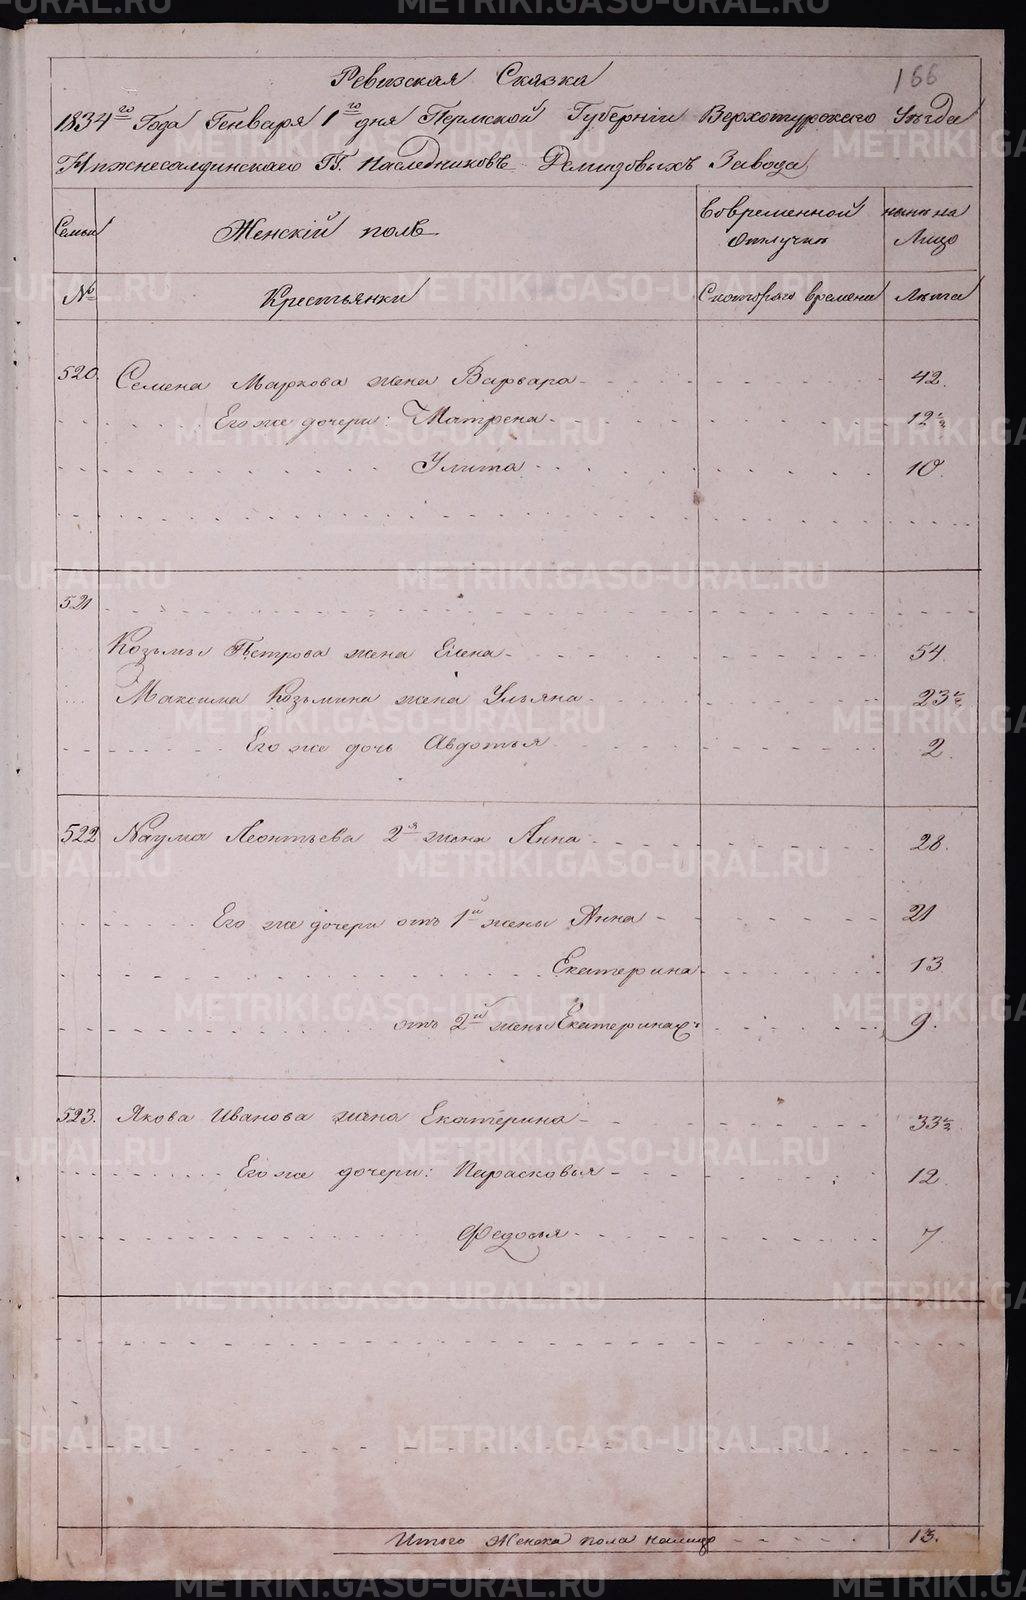 166
Ревизская Сказка
1834го Года Генваря 1го дня Пермской Губерніи Верхотурскаго Уѣзда
Нижнесалдинскаго ГГ. Наслѣдниковъ Демидовыхъ Завода
Семьи Женскій полъ Во временной отлучкѣ нынѣ на Лицо
№ Крестьянки Скотораго времени Лѣта
520. Семена Маркова жена Варвара 42.
Его же дочери: Матрена 12½
Улита 10.
521
Козьмы Петрова жена Елена 54.
Максима Козьмина жена Ульяна 23½
Его же дочь Авдотья 2.
522 Наума Леонтьева 2я жена Анна 28.
Его же дочери отъ 1й жены Анна 21
Екатерина 13
отъ 2й жены Екатерина 9.
523. Якова Иванова жена Екатерина 33½
Его же дочери: Парасковья 12
Федосья 7
Итого Женска пола налицо 13.
METRIKI.GASO-URAL.RU